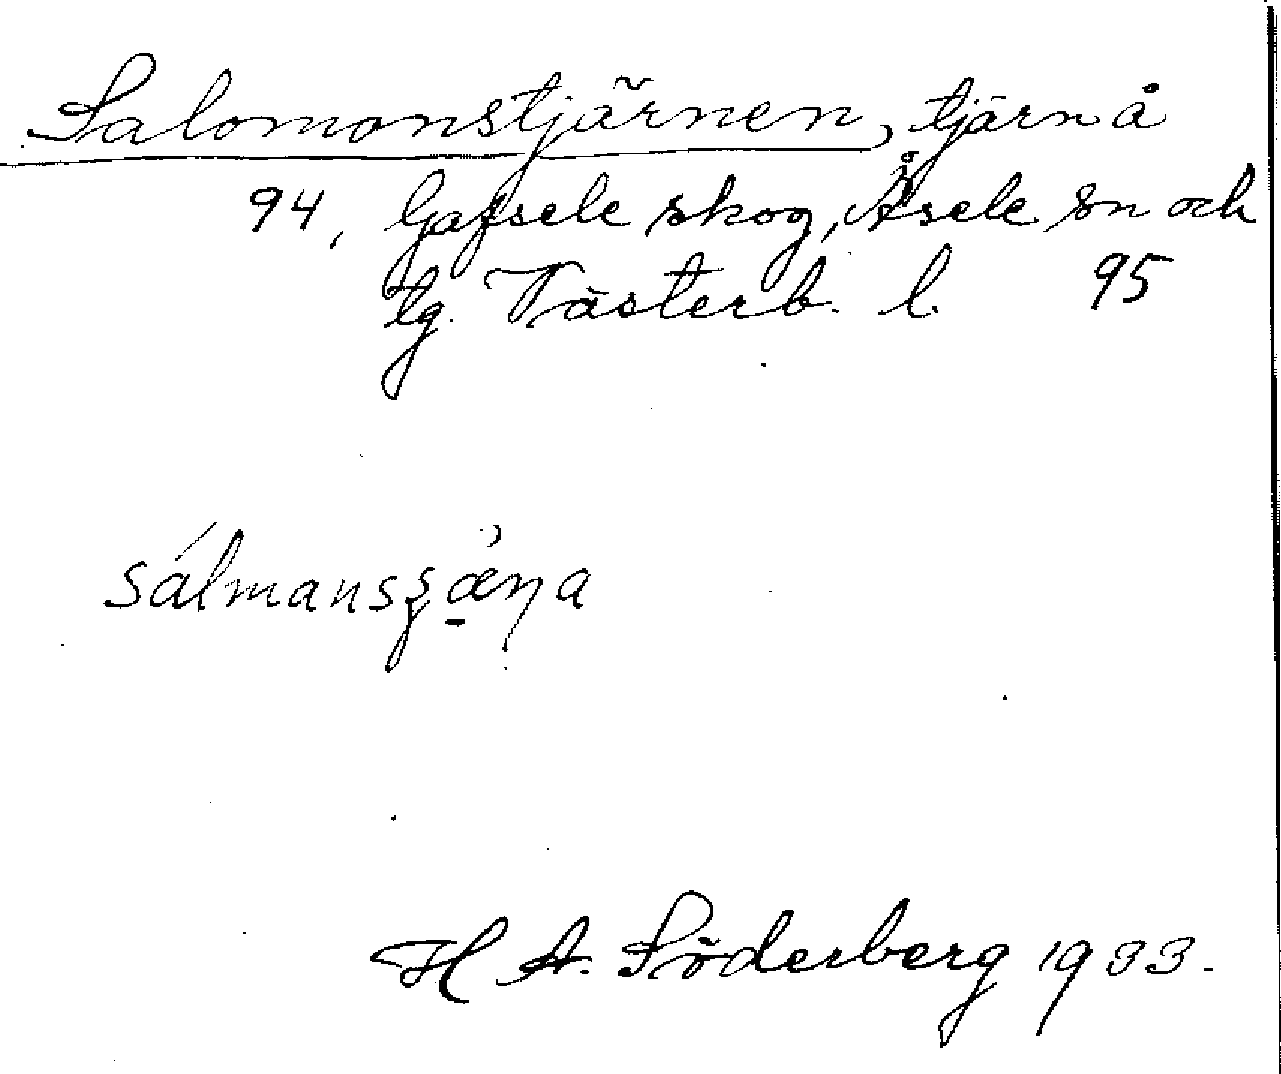 Salomonstjärnen, tjärn å
94, Gafsele skog, Åsele sn och
tg. Västerb. l. 95
sálmansʂæ̠̀ɳa
H A. Söderberg 1933.